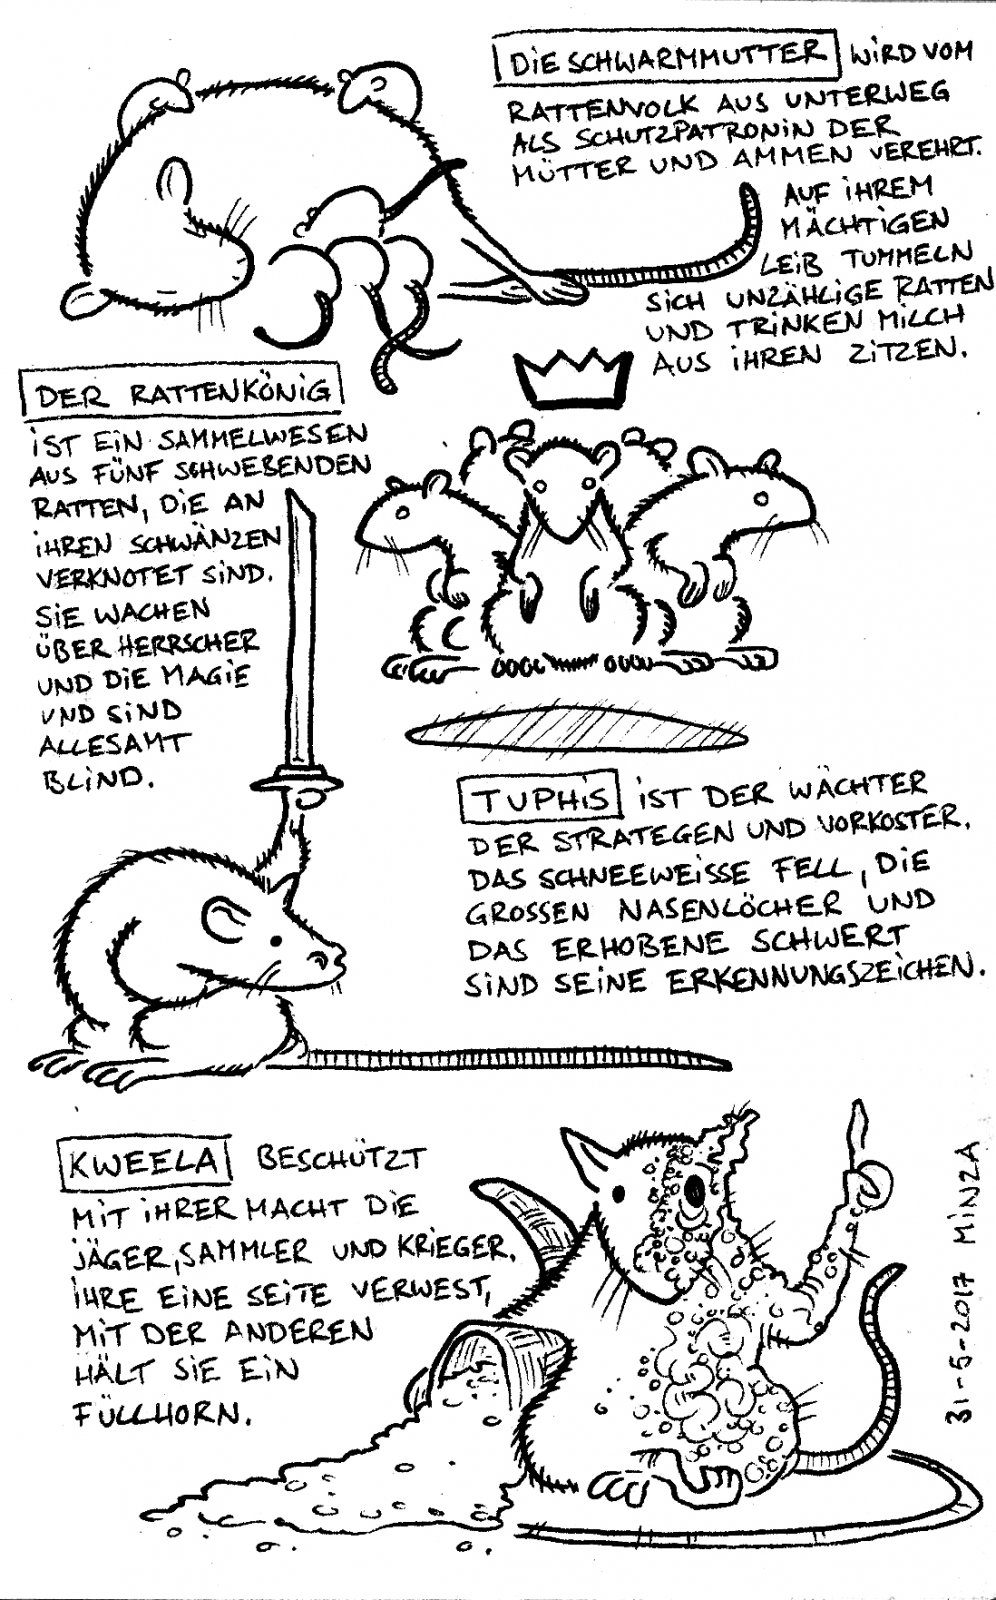 DIE SCHWARMMUTTER WIRD VOM
RATTENVOLK AUS UNTERWEG
ALS SCHUTZPATRONIN DER
MÜTTER UND AMMEN VEREHRT.
AUF IHREM
MÄCHTIGEN
LEIB TUMMELN
SICH UNZÄHLIGE RATTEN
UND TRINKEN MILCH
AUS IHREN ZITZEN.
DER RATTENKÖNIG
IST EIN SAMMELWESEN
AUS FÜNF SCHWEBENDEN
RATTEN, DIE AN
IHREN SCHWÄNZEN
VERKNOTET SIND.
SIE WACHEN
ÜBER HERRSCHER
UND DIE MAGIE
UND SIND
ALLESAMT
BLIND.
TUPHIS IST DER WÄCHTER
DER STRATEGEN UND VORKOSTER.
DAS SCHNEEWEISSE FELL, DIE
GROSSEN NASENLÖCHER UND
DAS ERHOBENE SCHWERT
SIND SEINE ERKENNUNGSZEICHEN.
KWEELA BESCHÜTZT
MIT IHRER MACHT DIE
JÄGER, SAMMLER UND KRIEGER.
IHRE EINE SEITE VERWEST,
MIT DER ANDEREN
HÄLT SIE EIN
FÜLLHORN.
31-5-2017 MINZA